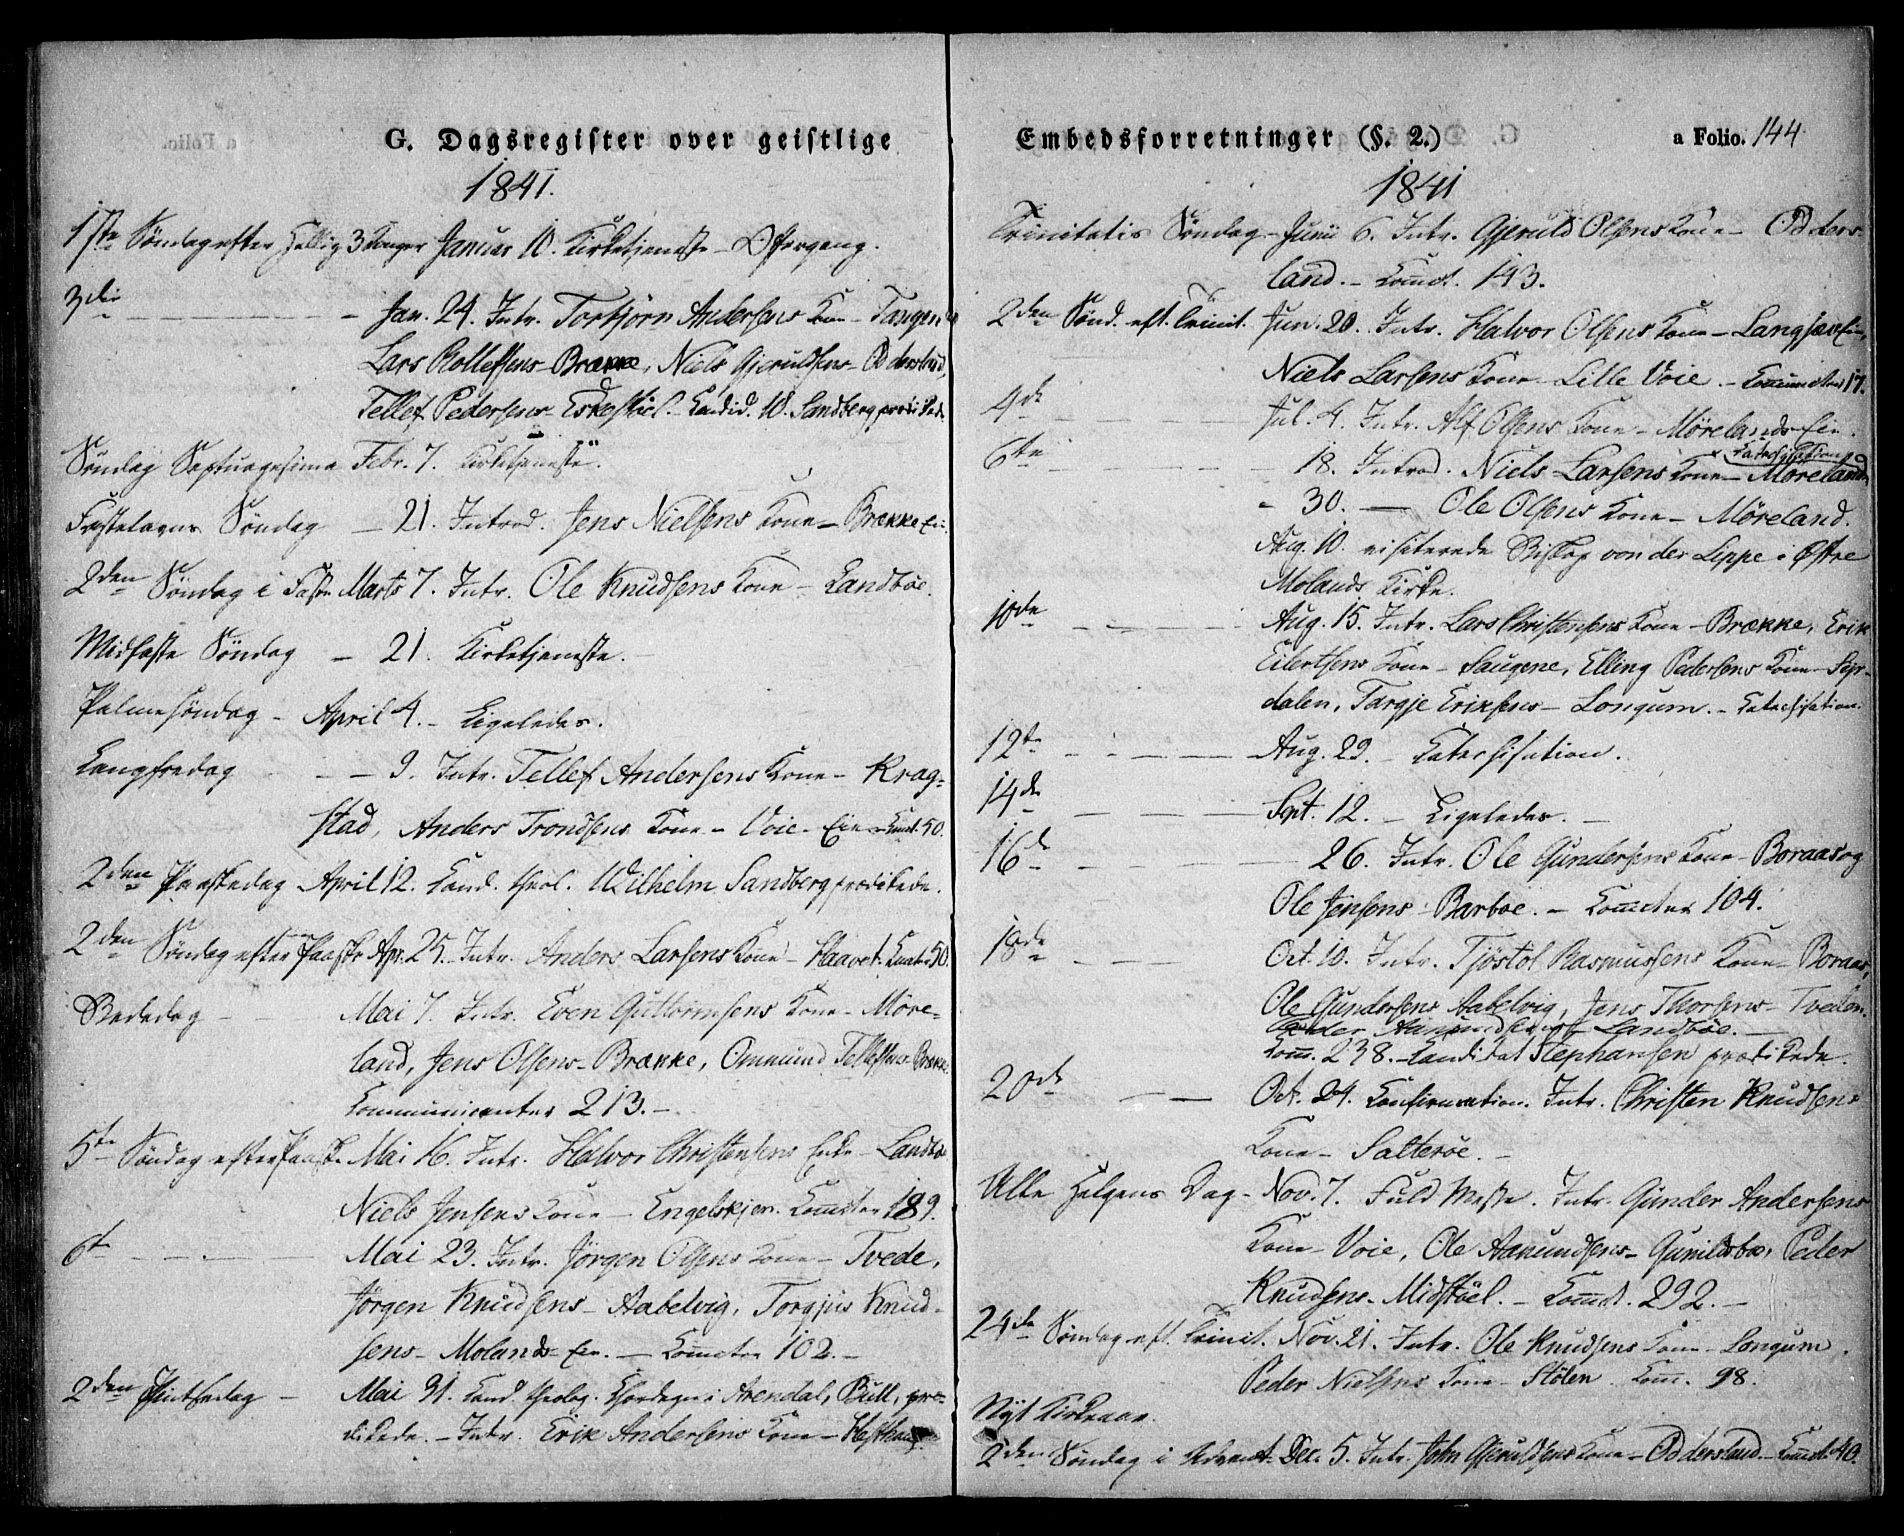 G. Dagsregister over geistlige
1841.
1ste Søndag efter Hellig 3 Konger Januar 10. Kirketjeneste - Offergang.
3die - Jan. 24. Intr. Torbjørn Andersens Kone - Tangen,
Lars Rollefsens - Brække, Niels Gjeruldsens - Oddersland,
Tellef Pedersens - Eskestøel. - Candid. Sandberg prædikede.
Søndag Septuagesima Febr. 7. Kirketjeneste.
Fastelavns Søndag - 21. Introd. Jens Nielsens Kone - Brække Eie.
2den Søndag i Faste Marts 7. Intr. Ole Knudsens Kone - Landbøe.
Midfaste Søndag - 21. Kirketjeneste. -
Palmesøndag - April 4. - Ligeledes.
Langfredag - 9. Intr. Tellef Andersens Kone - Krag-
stad, Anders Trondsens Kone - Voie-Eie - 50.
2den Paaskedag April 12. Cand. theol. Wilhelm Sandberg prædikede.
2den Søndag efter Paaske Apr. 25. Intr. Anders Larsens Kone - Haavet. 50.
Bededag - Mai 7. Intr. Even Guttormsens Kone - Møre-
land, Jens Olsens - Brække, Ommund Tellefsens - Brække.
Communicanter 213. -
5te Søndag efter Paaske Mai 16. Intr. Halvor Christensens Enke - Landbøe
Niels Jensens Kone - Engelskjen. Comcter 189.
6te - Mai 23. Intr. Jørgen Olsens Kone - Tvede,
Jørgen Knudsens - Aabelvig, Torgjus Knud-
sens - Molands-Eie. - Comcter 102. -
2den Pintsedag - Mai 31. Cand. theolog. i Arendal, Bull, præ-
dikede. - Intr. Erik Andersens Kone -
Embedsforretninger (§. 2.)
a Folio. 144
1841
Trinitatis Søndag - Junii 6. Intr. Gjeruld Olsens Kone - Odders-
land. - Comct. 143.
2den Sønd. eft. Trinit. Jun. 20. Intr. Halvor Olsens Kone - Langsæe Eie,
Niels Larsens Kone - Lille Voie. - 17.
4de - Jul. 4. Intr. Alf Olsens Kone - Mørelands-Eie.
6te - 18. Introd. Niels Larsens Kone - Møreland
Catechisation
- 30. - Ole Olsens Kone - Møreland.
Aug. 10. visiterede Biskop von der Lippe i Østre
Molands Kirke.
10de - Aug. 15. Intr. Lars Christensens Kone - Brække, Erik
Eilertsens Kone - Saugene, Elling Pedersens Kone - Seir-
dalen, Targje Eriksens - Longum. - Catechisation.
12te - Aug. 29. - Catechisation.
14de - Sept. 12. - Ligeledes. -
16de - 26. Intr. Ole Gundersens Kone - Boraas og
Ole Jensens - Barboe. - Comcter 104.
18de - Oct. 10. Intr. Tjøstol Rasmussens Kone - Boraas,
Ole Gundersens Aabelvig, Jens Thorsens - Tveden.
Peder Aanundsens - Landbøe. -
Com. 238. - Candidat Stephansen prædikede.
20de - Oct. 24. Confirmation. Intr. Christen Knudsens
Kone - Salterøe. -
Alle Helgens Dag - Nov. 7. Fuld Messe. Intr. Gunder Andersens
Kone - Voie, Ole Aanundsens - Gunildsboe, Peder
Knudsens - Midstøel. - Comct. 292. -
24de Søndag eft. Trinit. Nov. 21. Intr. Ole Knudsens Kone - Longum,
Peder Nielsens Kone - Stølen. Com. 98.
Nyt Kirkeaar.
2den Søndag i Advent. Dec. 5. Intr. John Gjeruldsens Kone - Oddersland. - Comct. 40.